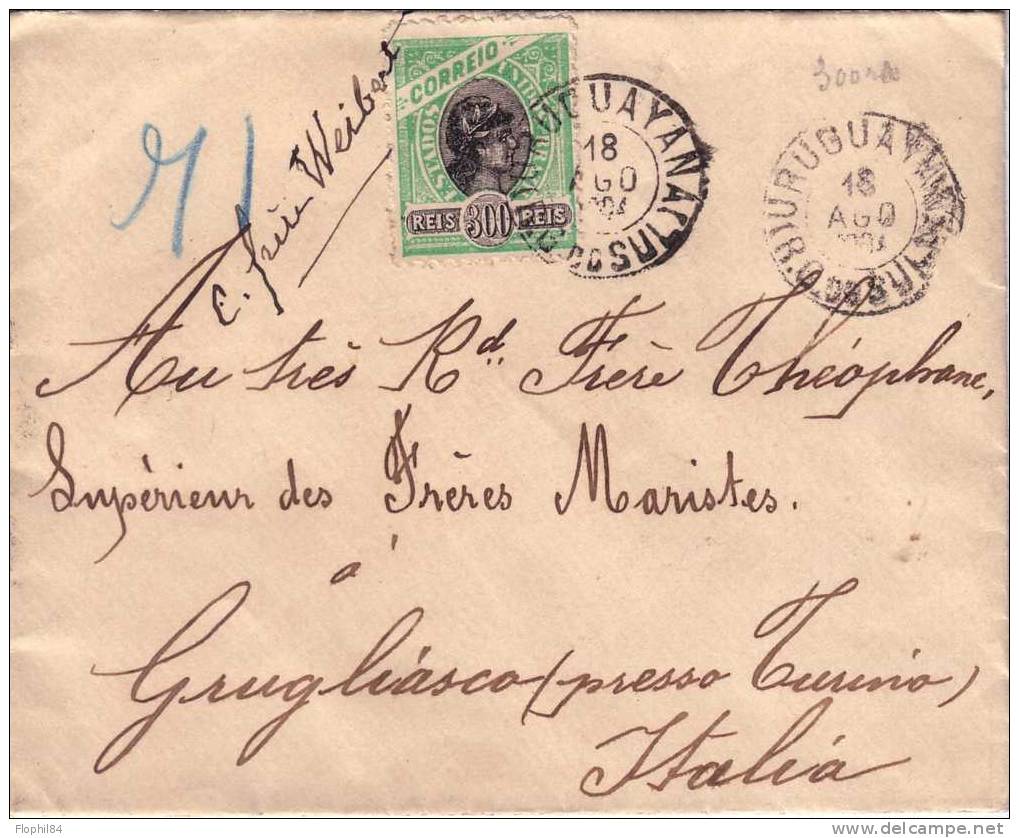 300
E. frère Weibert
CORREIO
ESTADOS
REIS 300 REIS
URUGUAYANA
18
AGO
DO SUL
URUGUAYANA
18
AGO
DO SUL
Au très Rd. Frère Théophane,
Supérieur des Frères Maristes.
à
Grugliasco (presso Turino)
Italia
Flophil84
www.delcampe.net